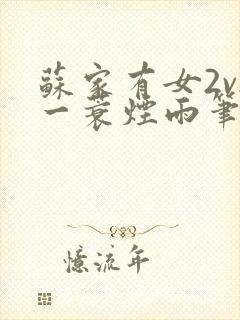 蘇家有女2v
一蓑煙雨筆
憶流年